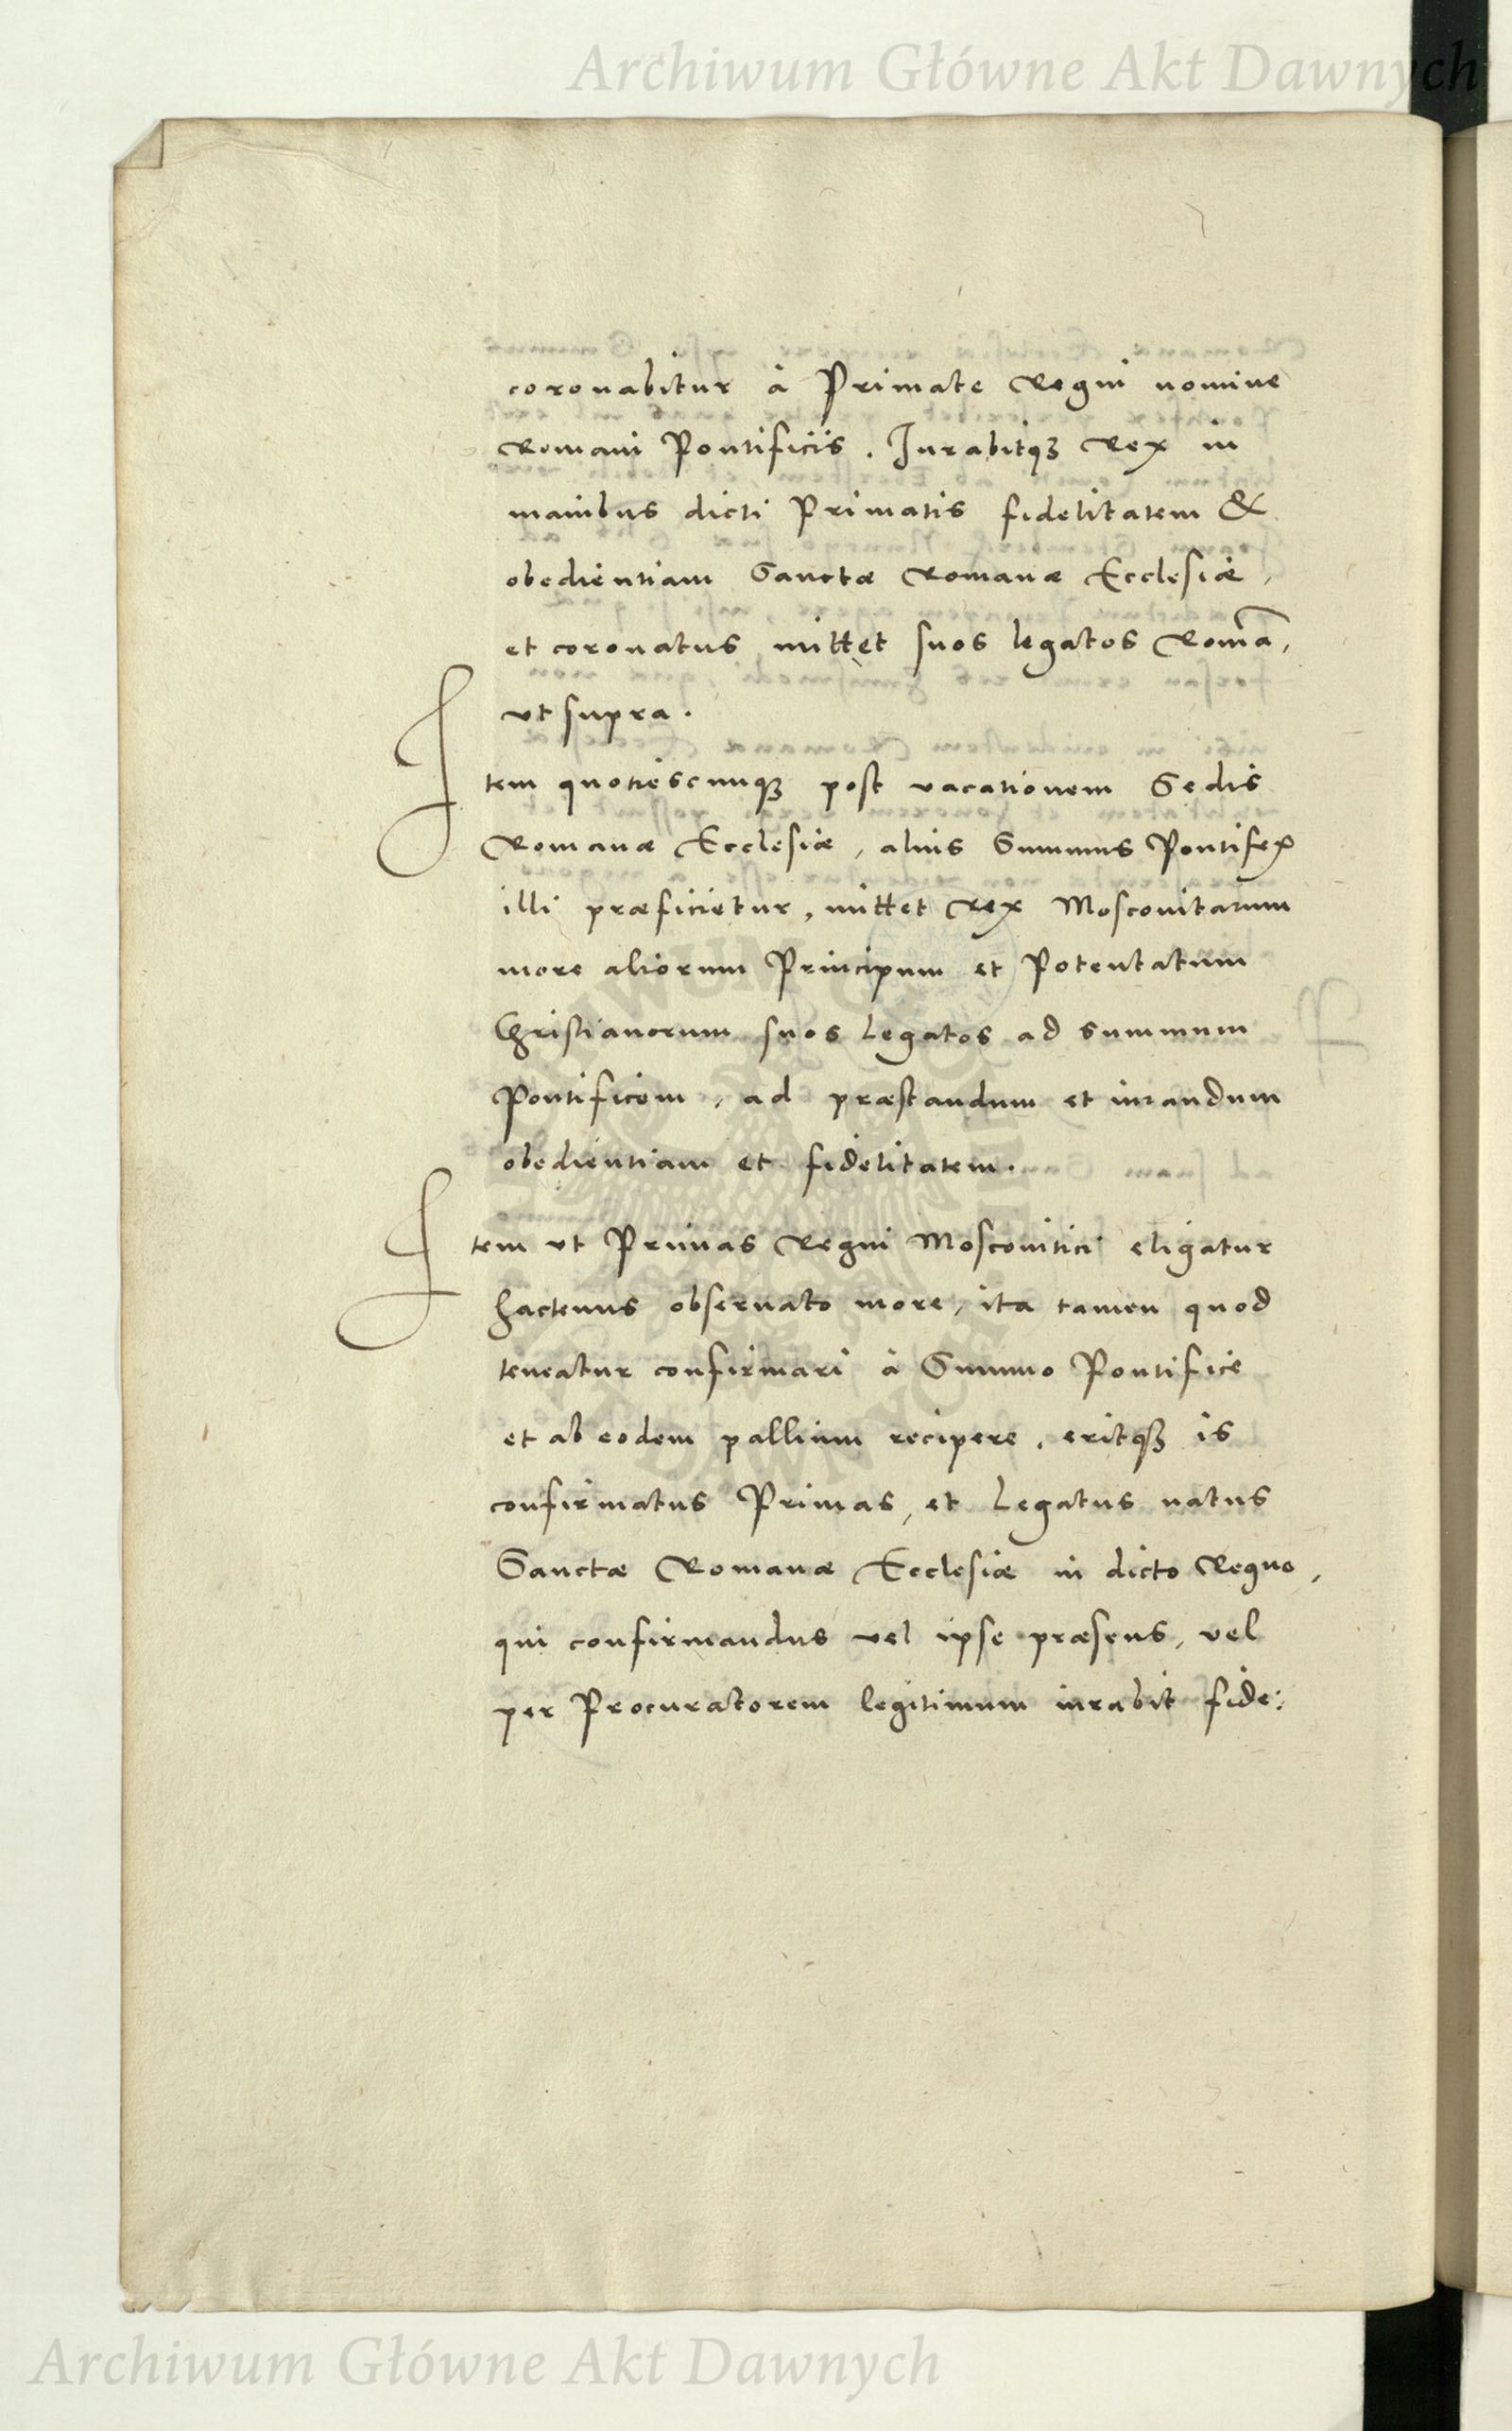 Archiwum Główne Akt Dawnych
coronabitur à Primate Regni nomine
Romani Pontificis. Jurabitqꝫ Rex in
manibus dicti Primatis fidelitatem &
obedientiam Sanctæ Romanæ Ecclesiæ,
et coronatus mittet suos legatos Romā,
vt supra.
Item quotiescunqꝫ post vacationem Sedis
Romanæ Ecclesiæ, alius Summus Pontifex
illi præficietur, mittet Rex Moscouitarum
more aliorum Principum et Potentatum
Christianorum suos Legatos ad summum
Pontificem, ad præstandum et iurandum
obedientiam et fidelitatem.
Item vt Primas Regni Moscouitici eligatur
hactenus obseruato more, ita tamen quod
teneatur confirmari à Summo Pontifice
et ab eodem pallium recipere, eritqꝫ is
confirmatus Primas, et Legatus natus
Sanctæ Romanæ Ecclesiæ in dicto Regno,
qui confirmandus vel ipse præsens, vel
per Procuratorem legitimum iurabit fide:
Archiwum Główne Akt Dawnych